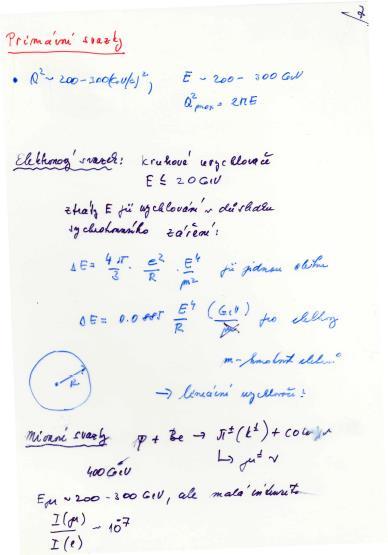 7
Primární svazky
• Q² ~ 200-300 (GeV/c)², E ~ 200 - 300 GeV
Q²max = 2ME
Elektronový svazek: kruhové urychlovače
E ≤ 20 GeV
ztráty E při urychlování v důsledku
sychrotronního záření:
ΔE = 4π/3 · e²/R · E⁴/m² při jednom oběhu
ΔE = 0.0885 E⁴/R (GeV) pro elektrony
R
m - hmotnost elektronů
→ lineární urychlovači!
Mionové svazky p + Be → π± (k±) + cokoliv
↳ μ± ν
400 GeV
Eμ ~ 200 - 300 GeV, ale malá intenzita
I(μ)/I(e) ~ 10⁻⁷